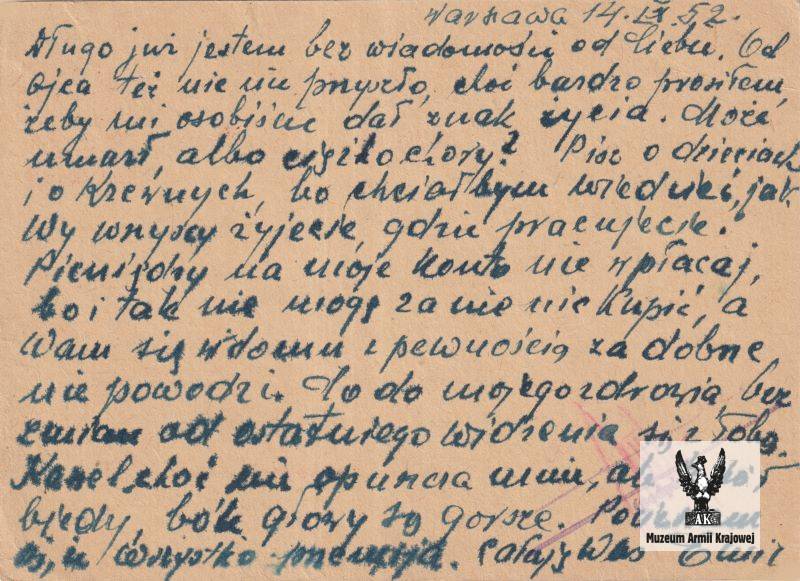 Warszawa 14.IX.52.
Długo już jestem bez wiadomości od Ciebie. Od
ojca też nic nie przyszło, choć bardzo prosiłem,
żeby mi osobiście dał znak życia. Może
umarł, albo ciężko chory? Pisz o dzieciach
i o krewnych, bo chciałbym wiedzieć, jak
Wy wszyscy żyjecie, gdzie pracujecie.
Pieniędzy na moje konto nie wpłacaj,
bo i tak nie mogę za nie nic kupić, a
Wam się w domu z pewnością za dobrze
nie powodzi. Co do mojego zdrowia, bez
zmian od ostatniego widzenia się z Tobą.
Kaszel choć nie opuszcza mnie, ale
biedy, bóle głowy są gorsze.
wszystko przemija. Całuję Was Emil
AK
Muzeum Armii Krajowej